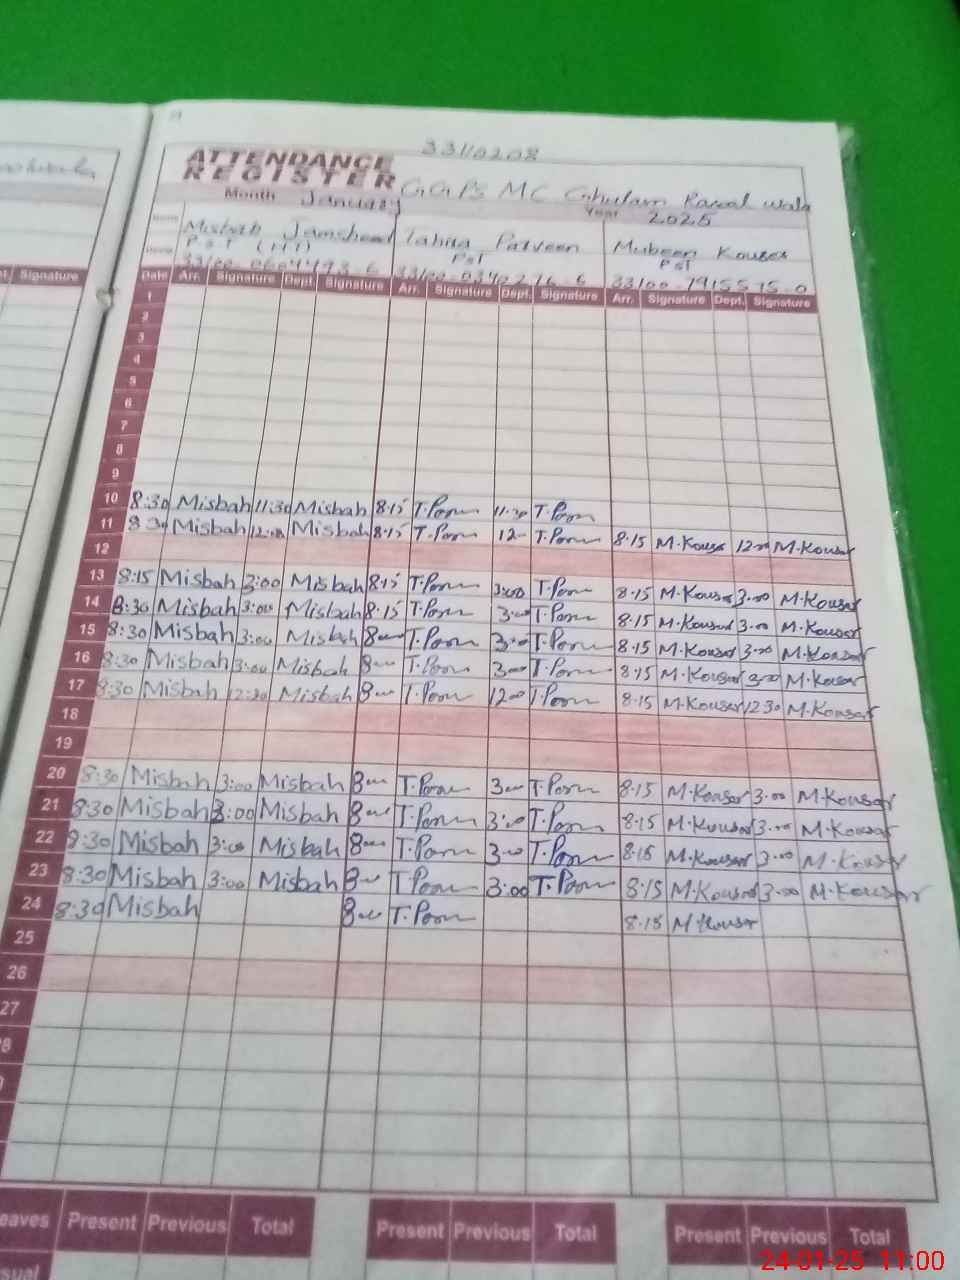 33110208
ATTENDANCE
REGISTER
GGPS MC Ghulam Rasool wala
Month January Year 2025
Name Misbah Jamshead Tahira Parveen Mubeen Kousar
PST (HT) PST PST
33100-0604493-6 33100-0340276-6 33100-7915575-0
Signature
Date Arr. Signature Dept. Signature Arr. Signature Dept. Signature Arr. Signature Dept. Signature
1
2
3
4
5
6
7
8
9
10 8:30 Misbah 11:30 Misbah 8:15 T.Parn 11:30 T.Parn
11 8:30 Misbah 12:00 Misbah 8:15 T.Parn 12- T.Parn 8:15 M.Kousar 12:00 M.Kousar
12
13 8:15 Misbah 3:00 Misbah 8:15 T.Parn 3:00 T.Parn 8:15 M.Kousar 3.00 M.Kousar
14 8:30 Misbah 3:00 Misbah 8:15 T.Parn 3:00 T.Parn 8:15 M.Kousar 3.00 M.Kousar
15 8:30 Misbah 3:00 Misbah 8:00 T.Parn 3:00 T.Parn 8:15 M.Kousar 3.00 M.Kousar
16 8:30 Misbah 3:00 Misbah 8:00 T.Parn 3:00 T.Parn 8:15 M.Kousar 3.00 M.Kousar
17 8:30 Misbah 12:30 Misbah 8:00 T.Parn 12:00 T.Parn 8.15 M.Kousar 12 30 M.Kousar
18
19
20 8:30 Misbah 3:00 Misbah 8:00 T.Parn 3:00 T.Parn 8.15 M.Kousar 3.00 M.Kousar
21 8:30 Misbah 3:00 Misbah 8:00 T.Parn 3:00 T.Parn 8.15 M.Kousar 3.00 M.Kousar
22 8:30 Misbah 3:00 Misbah 8:00 T.Parn 3:00 T.Parn 8.15 M.Kousar 3.00 M.Kousar
23 8:30 Misbah 3:00 Misbah 8:00 T.Parn 3:00 T.Parn 8.15 M.Kousar 3.00 M.Kousar
24 8:30 Misbah 8:00 T.Parn 8.15 M Kousar
25
26
27
Present Previous Total Present Previous Total Present Previous Total
24-01-25 11:00